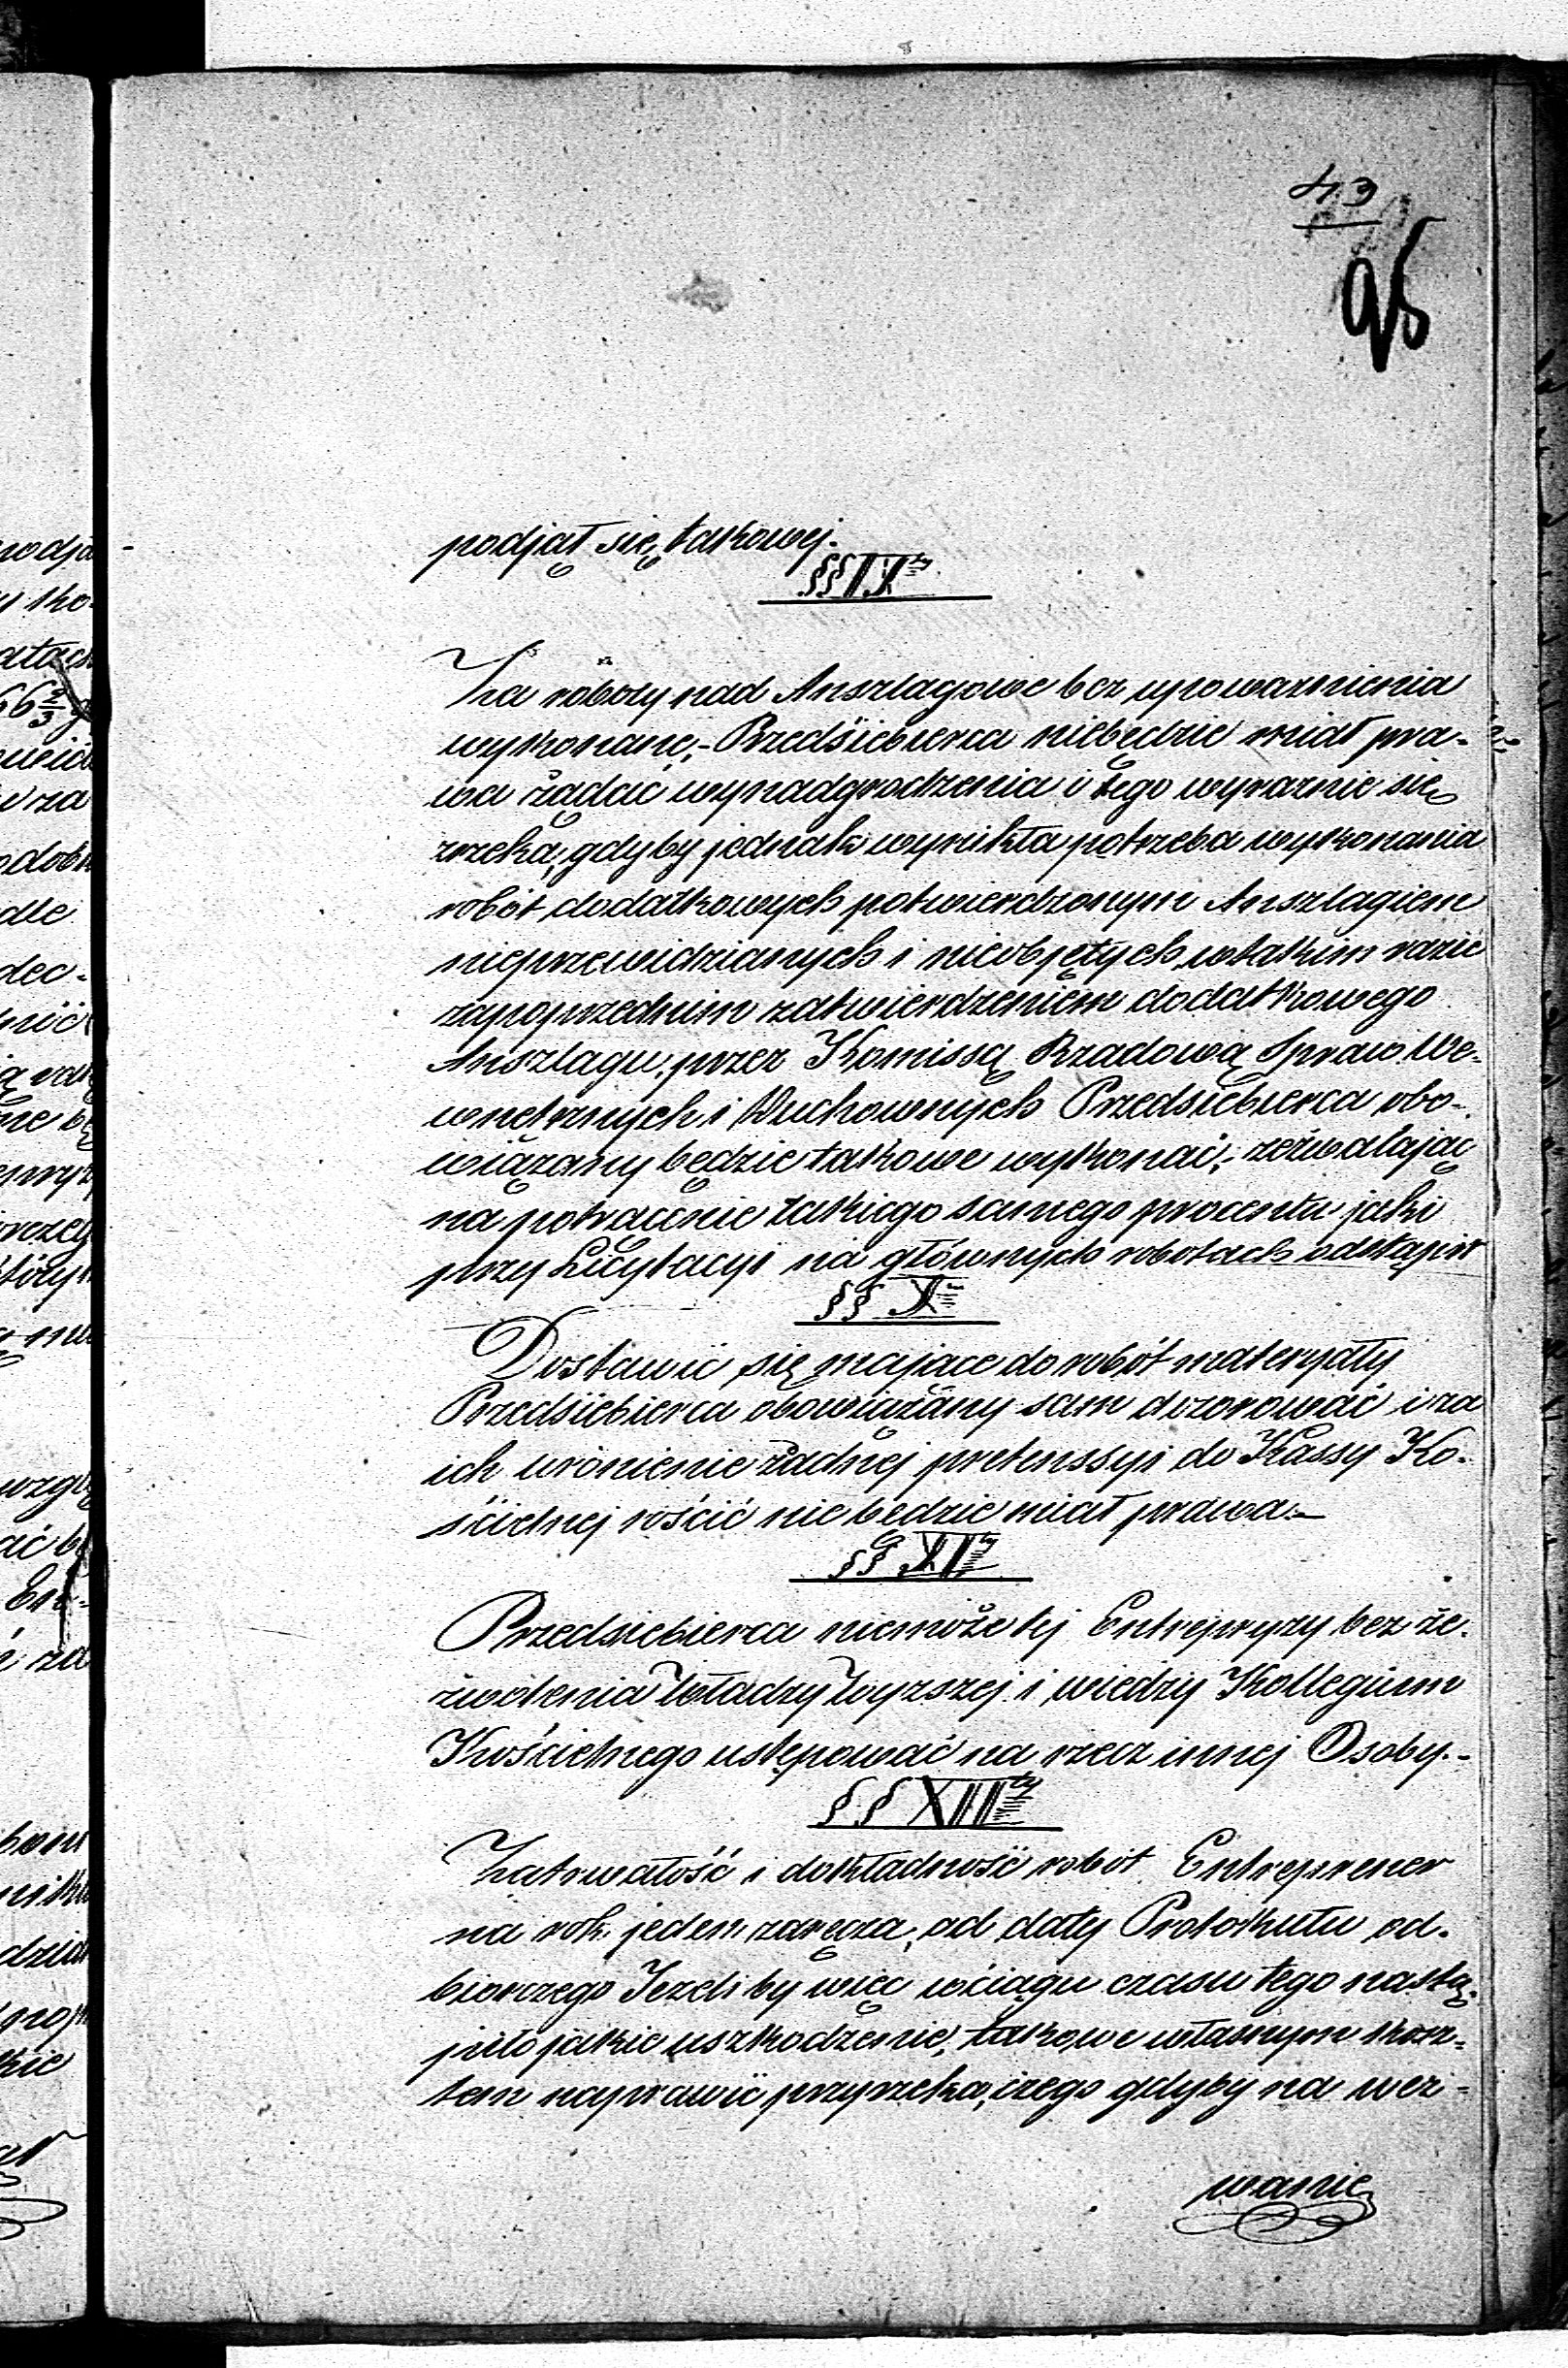 43
95
podjął się takowej.
§§ IX
Za roboty nad Anszlagowe bez upoważnienia
wykonane,- Przedsiębierca niebędzie miał pra-
wa żądać wynadgrodzenia i tego wyraznie się
zrzeka, gdyby jednak wynikła potrzeba wykonania
robót dodatkowych potwierdzonym Anszlagiem
nieprzewidzianych i nieobjętych, wtakim razie
zapoprzednim zatwierdzeniem dodatkowego
Anszlagu, przez Kommissą Rządową Spraw We-
wnetrznych i Duchownych Przedsiebierca obo-
wiązany będzie takowe wykonać, zezwalając
na potracenie takiego samego procentu jaki
przy Licytacyi na głównych robotach odstąpił
§§ X
Dostawić się mające do robót materyały
Przedsiebierca obowiązany sam dozorować i za
ich uronienie żadnej pretenssyi do Kassy Ko-
ścielnej rościć nie będzie miał prawa.-
§§ XI
Przedsiebierca niemoże tej Entrepryzy bez ze-
zwolenia Władzy Wyzszej i wiedzy Kollegium
Kościelnego ustępować na rzecz innej Osoby.-
§§ XII
Zatrwałość i dokładność robót Entreprener
na rok jeden zaręcza, od daty Protokułu od-
biorczego Jezeliby więc wciągu czasu tego nastą-
piło jakie uszkodzenie, takowe własnym kosz-
tem naprawić przyrzeka, czego gdyby na wez-
wanie